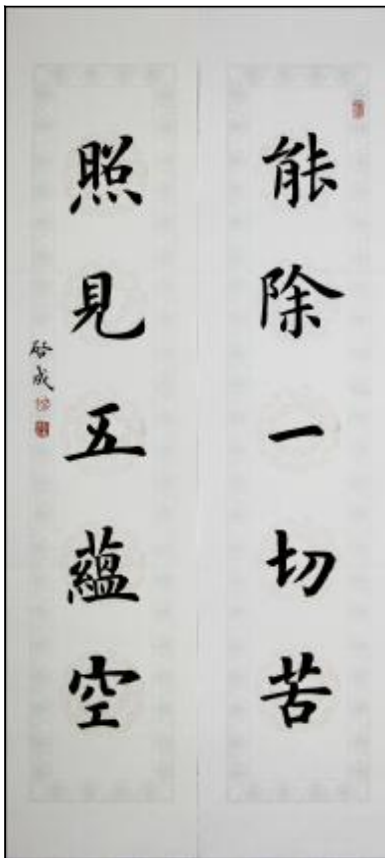 能除一切苦
照見五蘊空
啓成